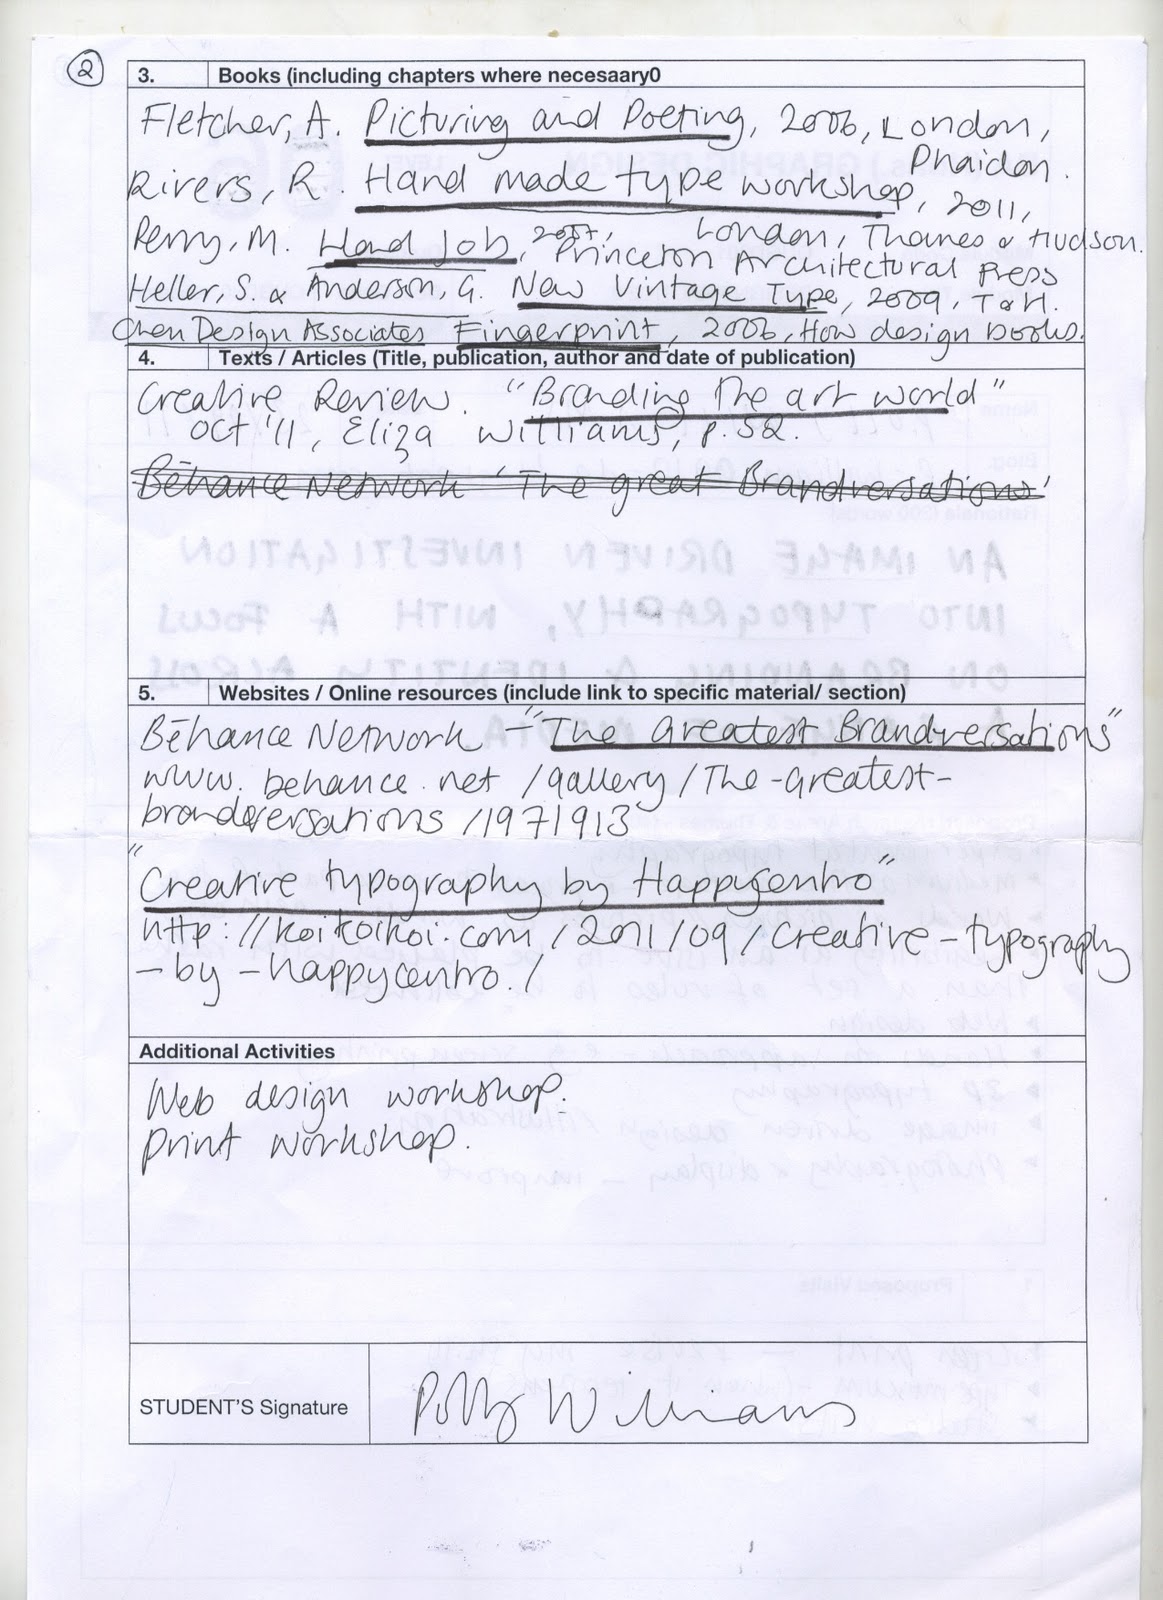 2
3. Books (including chapters where necesaary0
Fletcher, A. Picturing and Poeting, 2006, London, Phaidon.
Rivers, R. Hand made type workshop, 2011, London, Thames & Hudson.
Perry, M. Hand Job, 2007, Princeton Architectural Press
Heller, S. & Anderson, G. New Vintage Type, 2009, T&H.
Chen Design Associates Fingerprint, 2006, How design books.
4. Texts / Articles (Title, publication, author and date of publication)
Creative Review. "Branding the art world"
Oct '11, Eliza Williams, p.52.
Bēhance Network 'The great Brandversations'
5. Websites / Online resources (include link to specific material/ section)
Bēhance Network - "The Greatest Brandversations"
www.behance.net/gallery/The-Greatest-
brandversations/1971913
"Creative typography by Happycentro"
http://koikoikoi.com/2011/09/creative-typography
-by-happycentro./
Additional Activities
Web design workshop.
Print workshop.
STUDENT'S Signature Polly Williams